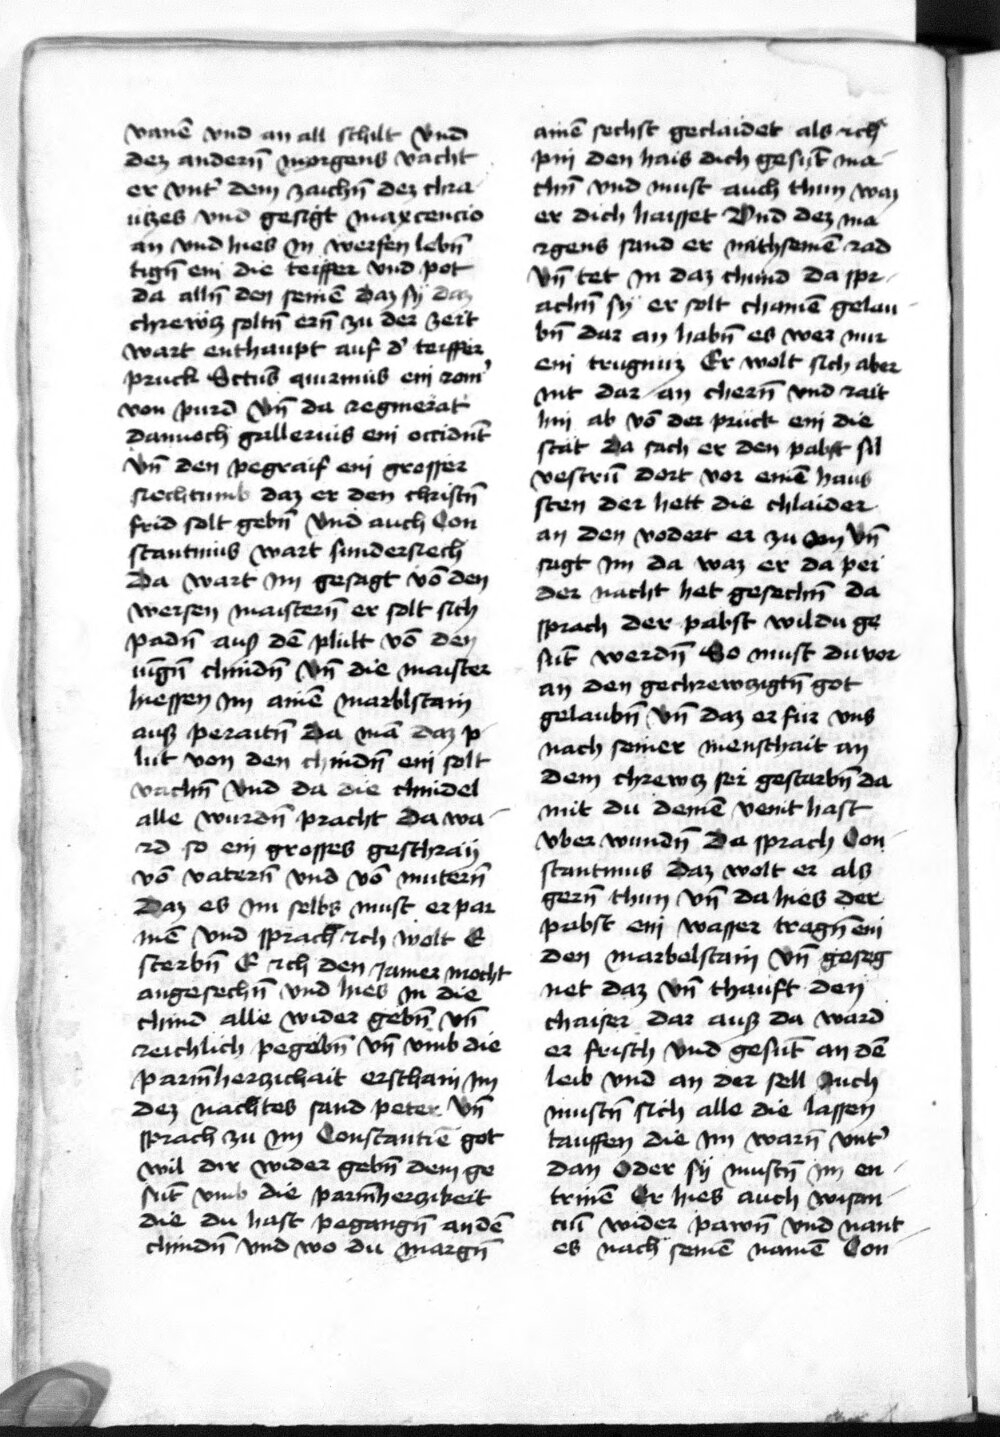 vanē vnd an all schilt Vnd
dez andern̄ morgens vacht
er vnt' dem zaichn̄ dez chra
utzes vnd gesigt maxcencio
an vnd hies in werfen lebn̄
tign̄ ein die teiffer vnd pot
da alln̄ den seinē Daz sÿ daz
chrewtz soltn̄ ern̄ zu der zeit
wart enthaupt auf d' teiffer
pruck Sctūs quirinus ein rom'
von purd Vn̄ da regnierat
dannoch gallerius ein occidn̄t
vn̄ den pegraif ein grosser
siechtumb daz er den christn̄
frid solt gebn̄ Vnd auch Con
stantinus wart sundersiech
Da wart im gesagt vō den
wersen maistern̄ er solt sich
padn̄ auß dē plutt vō den
iūgn̄ chindn̄ Vn̄ die maister
hiessen im ainē marblstain
auß peraitn̄ Da mā daz p
lut von den chindn̄ ein solt
vachn̄ Vnd da die chindel
alle wurdn̄ pracht Da wa
rd so ein grosses geschraÿ
vō vatern̄ vnd vō mutern̄
Daz es im selbs must erpar
mē Vnd sprach ich wolt E
sterbn̄ E ich den Jamer mocht
angesechn̄ vnd hies in die
chind alle wider gebn̄ vn̄
reichlich pegebn̄ Vn̄ vmb die
parm̄herczichait erschain im
dez nachtes sand peter Vn̄
sprach zu im Constantiē got
wil dir wider gebn̄ dein ge
sūt vmb die parm̄herczikeit
die du hast pegangn̄ an dē
chindn̄ vnd wo du margn̄
ainē sechst geclaidet als ich
pin den hais dich gesūt ma
chn̄ vnd must auch thun waz
er dich haisset Vnd dez ma
rgens sand er nach seinē rad
Vn̄ tet in daz chund da spr
achn̄ sÿ er solt chainē gelau
bn̄ dar an habn̄ es wer nur
ein trugnuz Er wolt sich aber
nit dar an chern̄ vnd rait
hin ab vō der pruck ein die
stat Da sach er den pabst sil
vestrū dort vor einē haus
sten der hett die chlaider
an den vodert er zu im Vn̄
sagt im da waz er da pei
der nacht het gesechn̄ da
sprach der pabst wildu ge
sūt werdn̄ So must du vor
an den gechrewczigtn̄ got
gelaubn̄ Vn̄ daz er für vns
nach seiner menschait an
dem chrewtz sei gestarbn̄ da
mit du deinē veint hast
vber wundn̄ Da sprach Con
stantinus Daz wolt er als
gern̄ thun Vn̄ da hies der
pabst ein wasser tragn̄ ein
den marbelstain Vn̄ geseg
net daz Vn̄ thauft den
chaiser dar auß da ward
er frisch Vnd gesūt an dē
leib vnd an der sell Auch
mustn̄ sich alle die lassen
tauffen die im warn̄ vnt'
dan Oder sÿ mustn̄ im en
trinē Er hies auch wisan
ciū wider pawn̄ vnd nant
es nach seinē namē Con